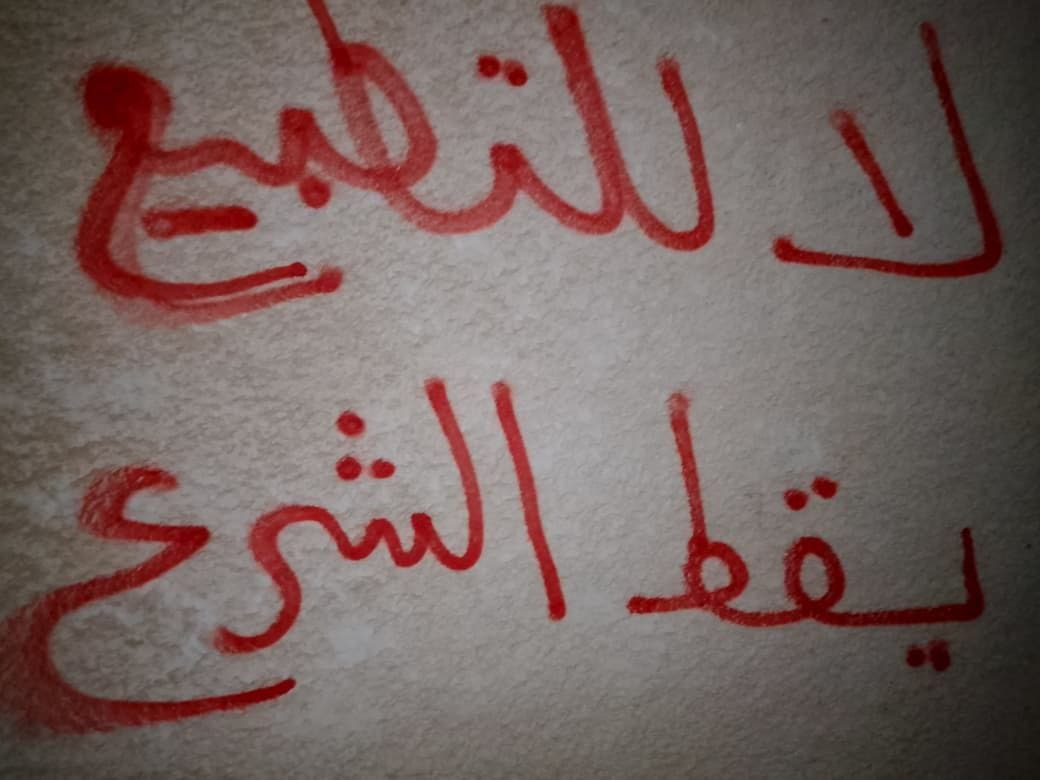 لا للتطبيع
يقط الشرع